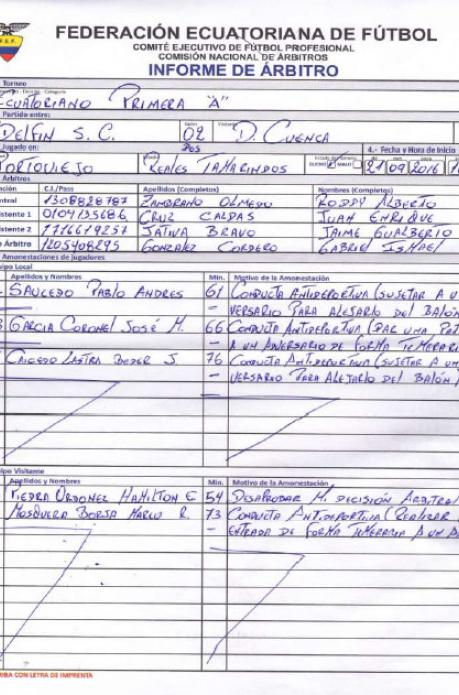 FEDERACIÓN ECUATORIANA DE FÚTBOL
COMITÉ EJECUTIVO DE FÚTBOL PROFESIONAL
COMISIÓN NACIONAL DE ÁRBITROS
INFORME DE ÁRBITRO
Torneo
ECUATORIANO PRIMERA "A"
Partido entre:
DELFIN S. C. 02 D. CUENCA
DOS
Jugado en: 4.- Fecha y Hora de Inicio
PORTOVIEJO REALES TAMARINDOS 21 09 2016
Árbitros
C.I./Pass Apellidos (Completos) Nombres (Completos)
1308828787 ZAMBRANO OLMEDO RODDY ALBERTO
istente 1 0104135686 CRUZ CALDAS JUAN ENRIQUE
istente 2 1716619257 JATIVA BRAVO JAIME GUALBERTO
Árbitro 1205408295 GONZALEZ CORDERO GABRIEL ISMAEL
Amonestaciones de jugadores
ipo Local
Apellidos y Nombres Min. Motivo de la Amonestación
SAUCEDO PABLO ANDRES 61 CONDUCTA ANTIDEPORTIVA (SUJETAR A U
- VERSARIO PARA ALEJARLO DEL BALÓN
GARCIA CORONEL JOSÉ M. 66 CONDUCTA ANTIDEPORTIVA (DAR UNA PAT
- A UN ADVERSARIO DE FORMA TEMERARI
CAICEDO LASTRA J 76 CONDUCTA ANTIDEPORTIVA (SUJETAR A UN
- VERSARIO PARA ALEJARLO DEL BALÓN
ipo Visitante
Apellidos y Nombres Min. Motivo de la Amonestación
PIEDRA ORDONEZ HAMILTON E 54 DESAPROBAR DECISIÓN ARBITRAL
MOSQUERA BORJA MARCO R. 73 CONDUCTA ANTIDEPORTIVA (REALIZAR
- ENTRADA DE FORMA TEMERARIA A UN
RIBA CON LETRA DE IMPRENTA